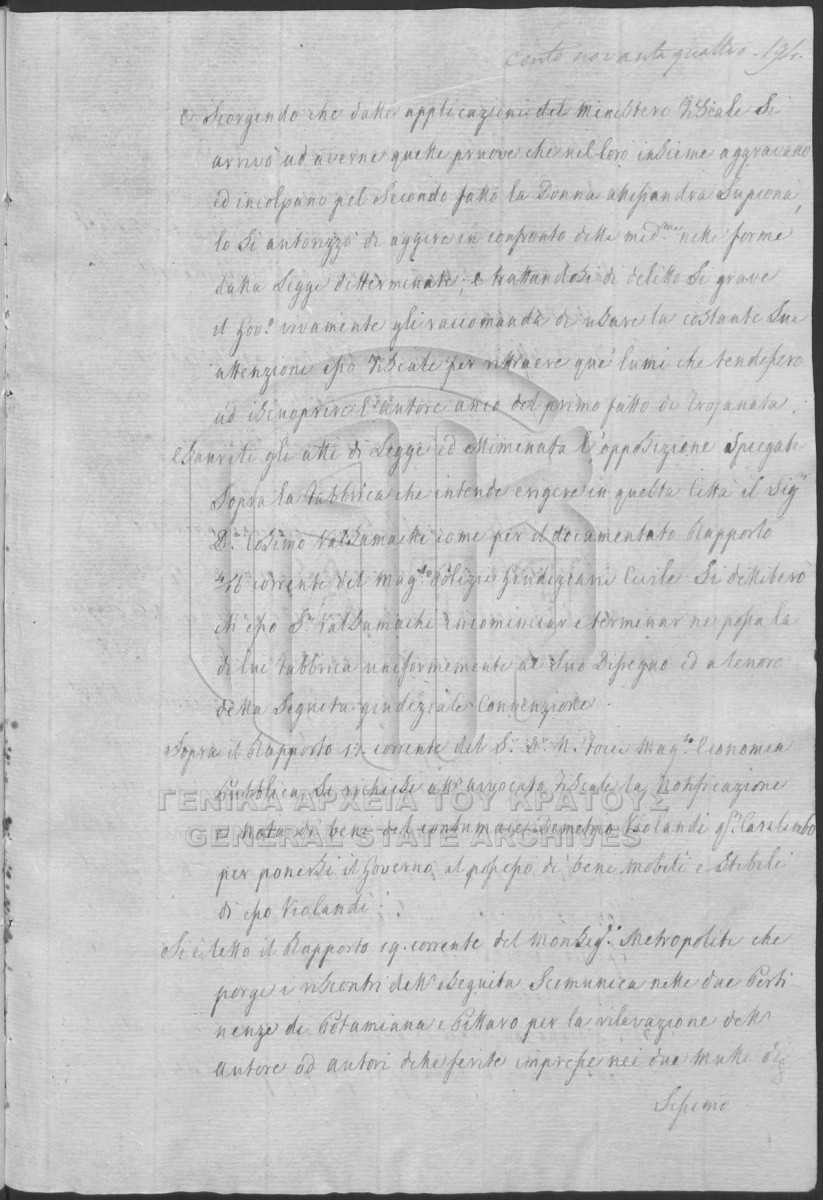 Cento novanta quattro. 194.
e Scorgendo che dalle applicazioni del Ministero Fiscale si
arrivò ad averne quelle pruove che nel loro insieme aggravano
ed incolpano pel secondo fatto la Donna Alessandra Supionà,
lo si autorizzò di aggire in confronto della med.ma nelle forme
dalla Legge ditterminate; e trattandosi di delitto si grave
il Gov.o vivamente gli raccomanda di usare la costante sua
attenzione esso Fiscale per rittraere que' lumi che tendessero
ad iscuoprire l'autore anco del primo fatto di Trojanata.
Esauriti gli atti di Legge ed eliminata l'opposizione spiegata
sopra la Fabbrica che intende erigere in questa Città il Sig.r
D.r Cosimo Valsamachi come per il documentato Rapporto
16 corrente del Mag.to Polizia Giudiziaria Civile si delliberò
ch'esso S.r Valsamachi incominciar e terminar ne possa la
di lui Fabbrica uniformemente al suo Dissegno ed a tenore
della seguita giudiziale Convenzione.
Sopra il Rapporto 17 corrente del S.r D.r N. Mag.to Economia
Pubblica, si richiese all'avvocato Fiscale la Nottificazione
e Nota di beni del contumace Demetrio Violandi q.m Caralambo
per ponersi il Governo al possesso di beni Mobili e Stabili
di esso Violandi.
Si è letto il Rapporto 19 corrente del Monsig.r Metropolita che
porge i riscontri dell'eseguita Scomunica nelle due Perti
nenze di Potamiana e Pillaro per la rilevazione dell'
Autore od autori delle ferite impresse nei due Mulli di
ΓΕΝΙΚΑ ΑΡΧΕΙΑ ΤΟΥ ΚΡΑΤΟΥΣ
GENERAL STATE ARCHIVES